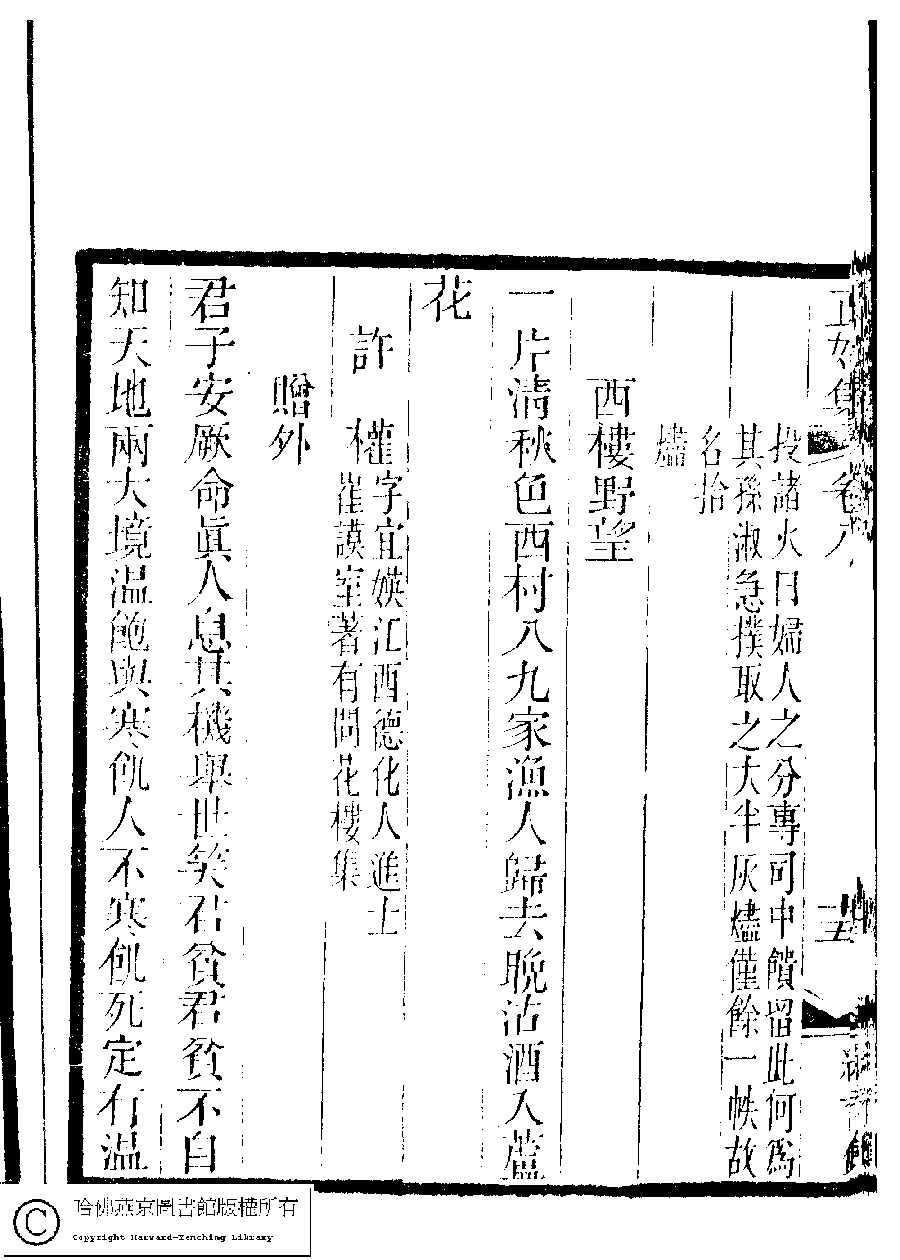 正始集 卷八
投諸火曰婦人之分專司中饋畱此何爲
其孫淑急撲取之大半灰燼僅餘一帙故
名拾
燼
西樓野望
一片清秋色西村八九家漁人歸去晚沽酒入蘆
花
許權字宜媖江西德化人進士
崔謨室著有問花樓集
贈外
君子安厥命眞人息其機舉世笑君貧君貧不自
知天地兩大境温飽與寒飢人不寒飢死定有温
哈佛燕京圖書館版權所有
Copyright Harvard-Yenching Library